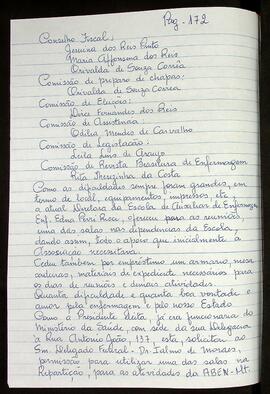 Pag - 172
Conselho Fiscal:
Jesuina dos Reis Pinto
Maria Affonsina dos Reis
Orivalda de Souza Corrêa
Comissão de preparo de chapas:
Orivalda de Souza Corrêa
Comissão de Eleições:
Dirce Fernandes dos Reis
Comissão de Assistência:
Odilia Mendes de Carvalho
Comissão de Legislação:
Leila Lins de Araujo
Comissão de Revista Brasileira de Enfermagem
Rita Therezinha da Costa
Como as dificuldades sempre foram grandes, em
termo de local, equipamentos, impressos, etc
a atual Diretora da Escola de Auxiliar de Enfermagem
Enf. Edna Perri Ricci, ofereceu para as reuniões,
uma das salas nas dependencias da Escola,
dando assim, todo o apoio que inicialmente a
Associação necessitava.
Cedeu tambem por empréstimo um armário, mesa
cadeiras, materiais de expediente necessários para
os dias de reuniões e demais atividades.
Quanta dificuldade e quanta boa vontade e
amor pela enfermagem e pelo nosso Estado
Como a Presidente eleita, já era funcionaria do
Ministério da Saúde, com sede da sua Delegacia
à Rua Antonio João, 137, esta solicitou ao
Snr. Delegado Federal - Dr. Talmo de Moraes,
permissão para utilizar uma das salas na
Repartição, para as atividades da ABEN-Mt.